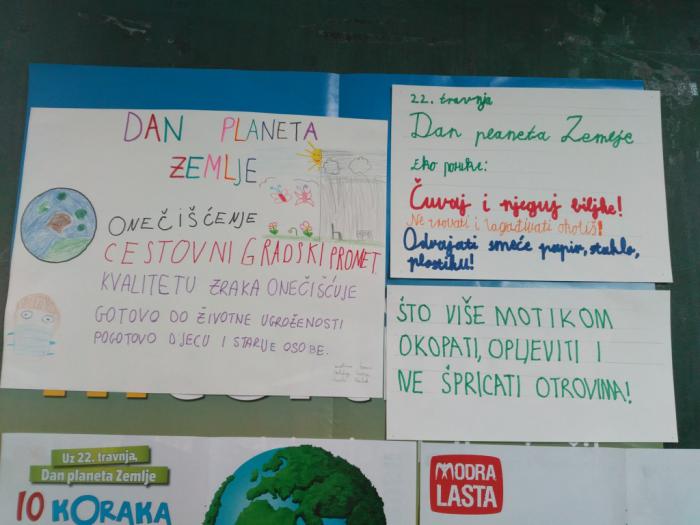 DAN PLANETA
ZEMLJE
ONEČIŠĆENJE
CESTOVNI GRADSKI PROMET
KVALITETU ZRAKA ONEČIŠĆUJE
GOTOVO DO ŽIVOTNE UGROŽENOSTI
POGOTOVO DJECU I STARIJE OSOBE.
22. travnja
Dan planeta Zemlje
Eko poruke:
Čuvaj i njeguj biljke!
Ne trovati i zagađivati okoliš!
Odvajati smeće papir, staklo,
plastiku!
ŠTO VIŠE MOTIKOM
OKOPATI, OPLJEVITI I
NE ŠPRICATI OTROVIMA!
Uz 22. travnja,
Dan planeta Zemlje
10 KORAKA
MODRA
LASTA